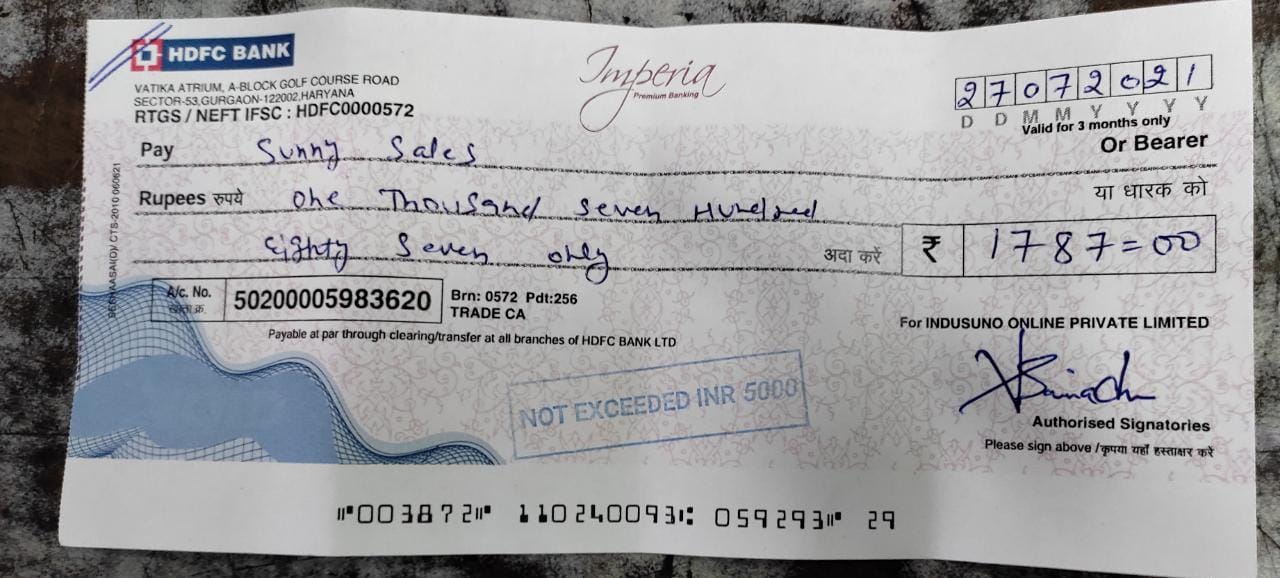 HDFC BANK
Imperia
Premium Banking
VATIKA ATRIUM, A-BLOCK GOLF COURSE ROAD
SECTOR-53,GURGAON-122002,HARYANA
RTGS / NEFT IFSC : HDFC0000572
27072021
D D M M Y Y Y Y
Valid for 3 months only
Pay Sunny Sales Or Bearer
या धारक को
Rupees रुपये One Thousand Seven Hundred
Eighty Seven only अदा करें ₹ 1787=00
A/c. No. 50200005983620 Brn: 0572 Pdt:256
TRADE CA
Payable at par through clearing/transfer at all branches of HDFC BANK LTD
For INDUSUNO ONLINE PRIVATE LIMITED
NOT EXCEEDED INR 5000
Authorised Signatories
Please sign above /कृपया यहाँ हस्ताक्षर करें
CTS-2010 060621
⑈003872⑈ 110240093⑆ 059293⑈ 29